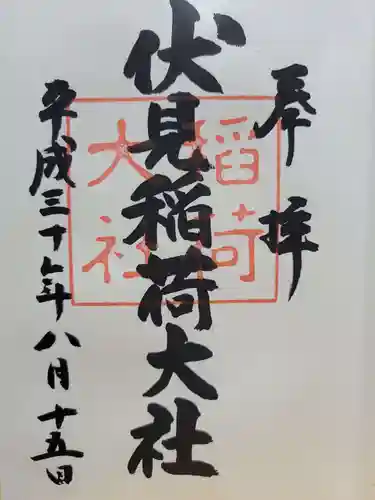 奉拝
伏見稲荷大社
平成三十年八月十五日
稲荷
大社